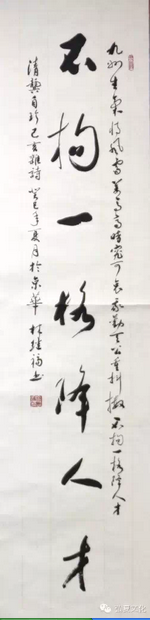 九州生气恃风雷万马齐喑究可哀我劝天公重抖擞不拘一格降人才
不拘一格降人才
清龚自珍己亥杂诗癸巳年夏月於京华